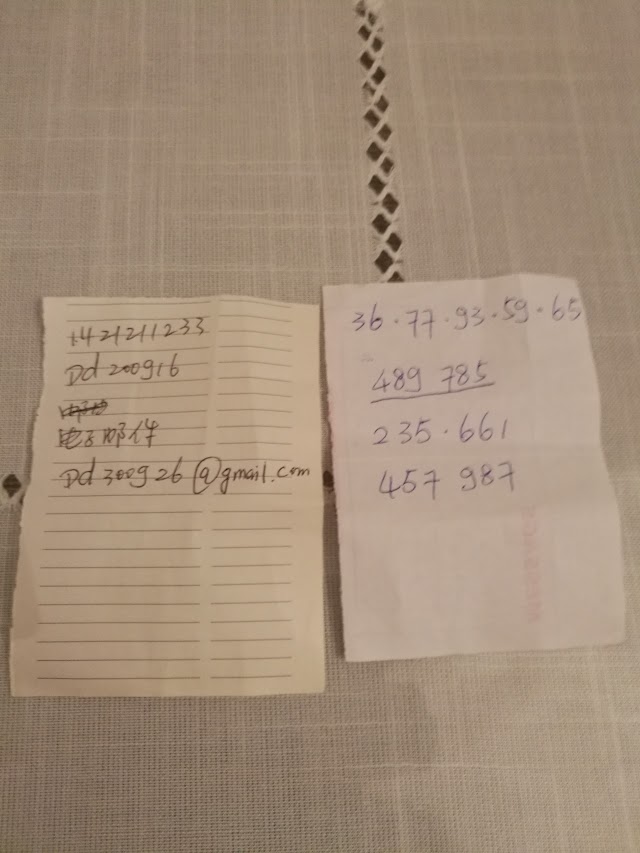 +421211233
Dd 200916
电子邮件
Dd300926@gmail.com
36.77.93.59.65
489 785
235.661
457 987